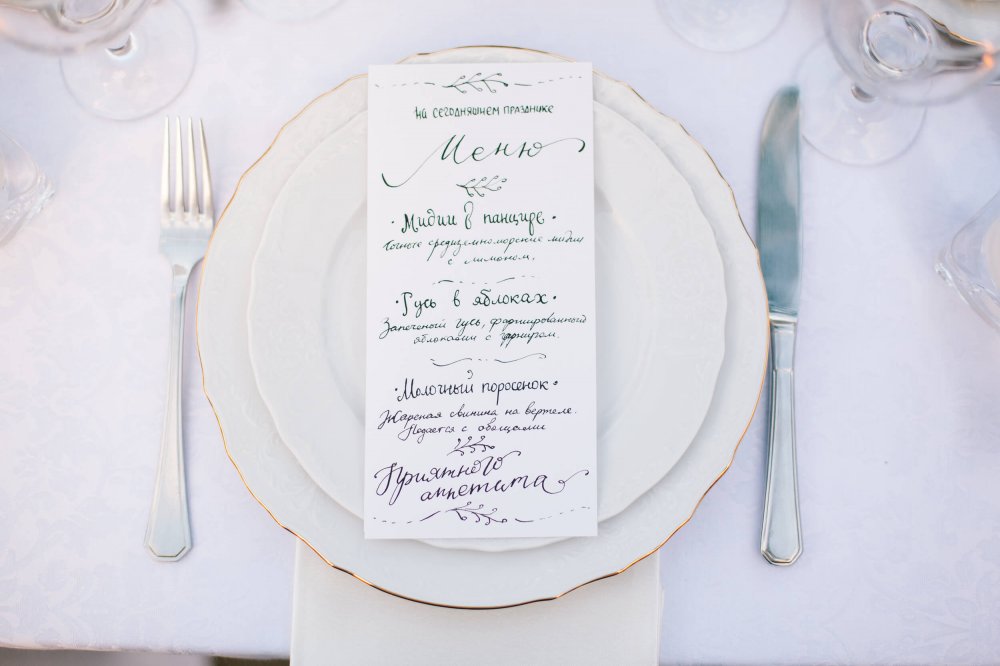 на сегодняшнем празднике
Меню
· Мидии в панцире ·
Сочные средиземноморские мидии
с лимоном.
· Гусь в яблоках ·
Запеченый гусь, фаршированный
яблоками с гарниром.
· Молочный поросенок ·
Жареная свинина на вертеле.
Подается с овощами
Приятного
аппетита